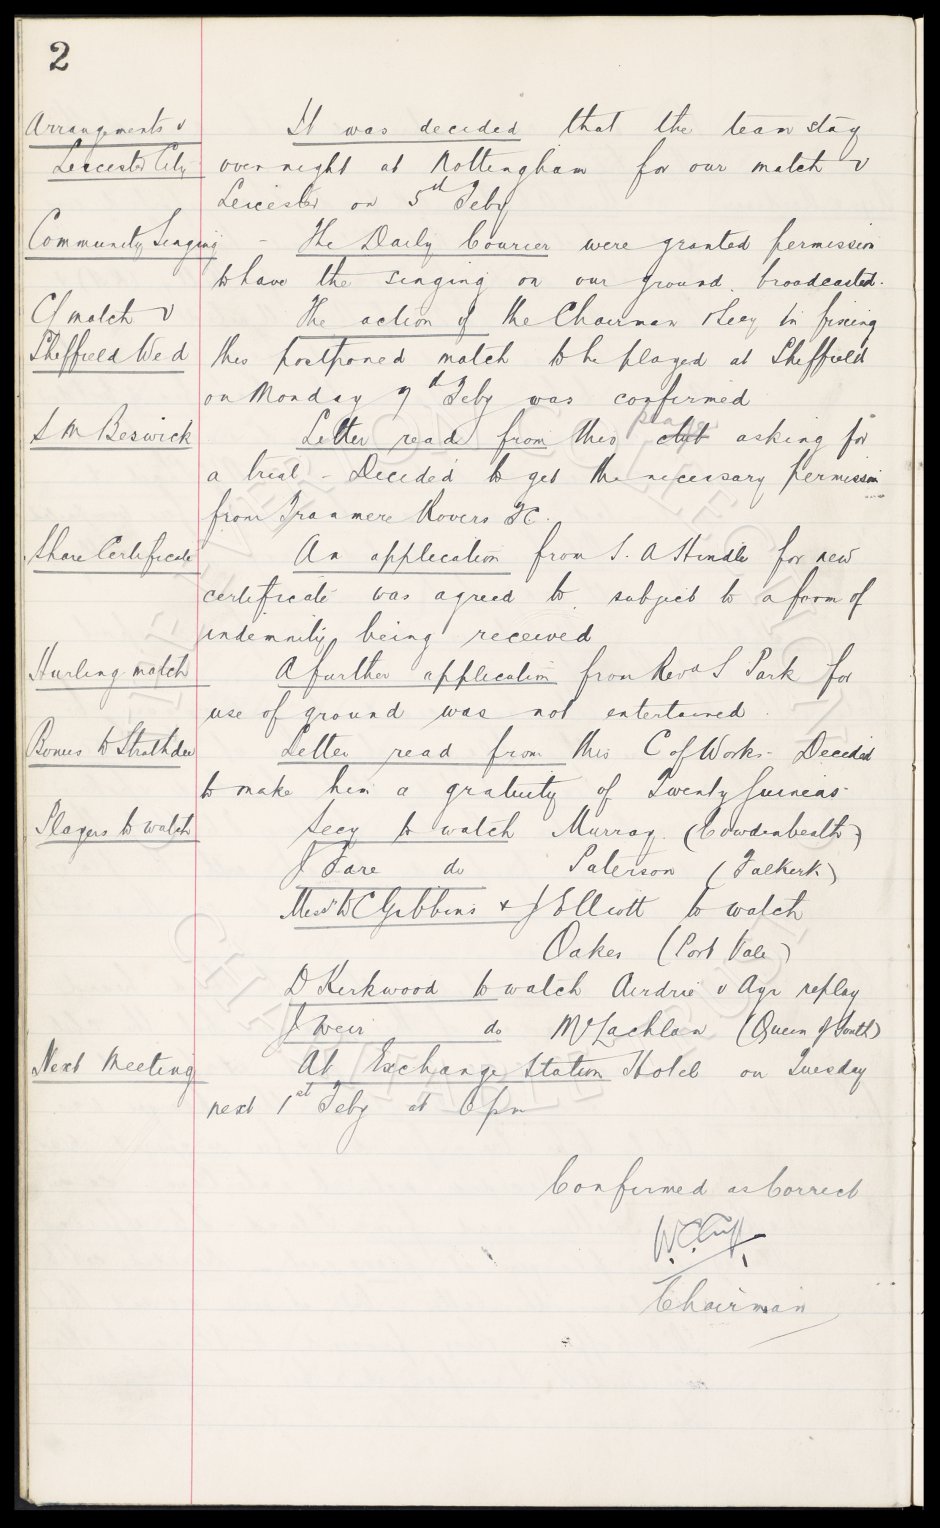 2
Arrangements v
Leicester City
It was decided that the team stay
over night at Nottingham for our match v
Leicester on 5th Feby
Community Singing - The Daily Courier were granted permission
to have the singing on our ground broadcasted.
CL match v
Sheffield Wed
The action of the Chairman & Secy in fixing
this postponed match to be played at Sheffield
on Monday 7th Feby was confirmed
S M Beswick
Letter read from this club player asking for
a trial - Decided to get the necessary permission
from Tranmere Rovers FC.
Share Certificate
An application from S. A Hindle for new
certificate was agreed to subject to a form of
indemnity being received
Hurling match
A further application from Revd S Park for
use of ground was not entertained
Bonus to Strathdee
Letter read from this C of Works - Decided
to make him a gratuity of Twenty Guineas
Players to watch
Secy to watch Murray (Cowdenbeath)
J Fare do Paterson (Falkirk)
Messrs W C Gibbins & J Elliott to watch
Oakes (Port Vale)
D Kirkwood to watch Airdrie v Ayr replay
J Weir do McLachlan (Queen of South)
Next Meeting
At Exchange Station Hotel on Tuesday
next 1st Feby at 6 pm
Confirmed as Correct
W. C. Cuff
Chairman
EVERTON COLLECTION
CHARITABLE TRUST